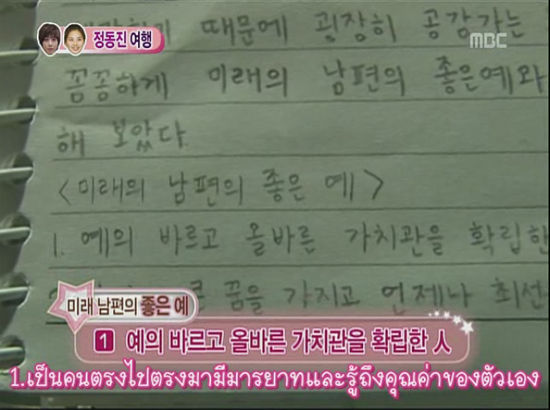 정동진 여행
MBC
때문에 굉장히 공감가는
꼼꼼하게 미래의 남편의 좋은예와
해 보았다.
<미래의 남편의 좋은 예>
1. 예의 바르고 올바른 가치관을 확립한
꿈을 가지고 언제나 최선
미래 남편의 좋은 예
1 예의 바르고 올바른 가치관을 확립한 人
1.เป็นคนตรงไปตรงมามีมารยาทและรู้ถึงคุณค่าของตัวเอง